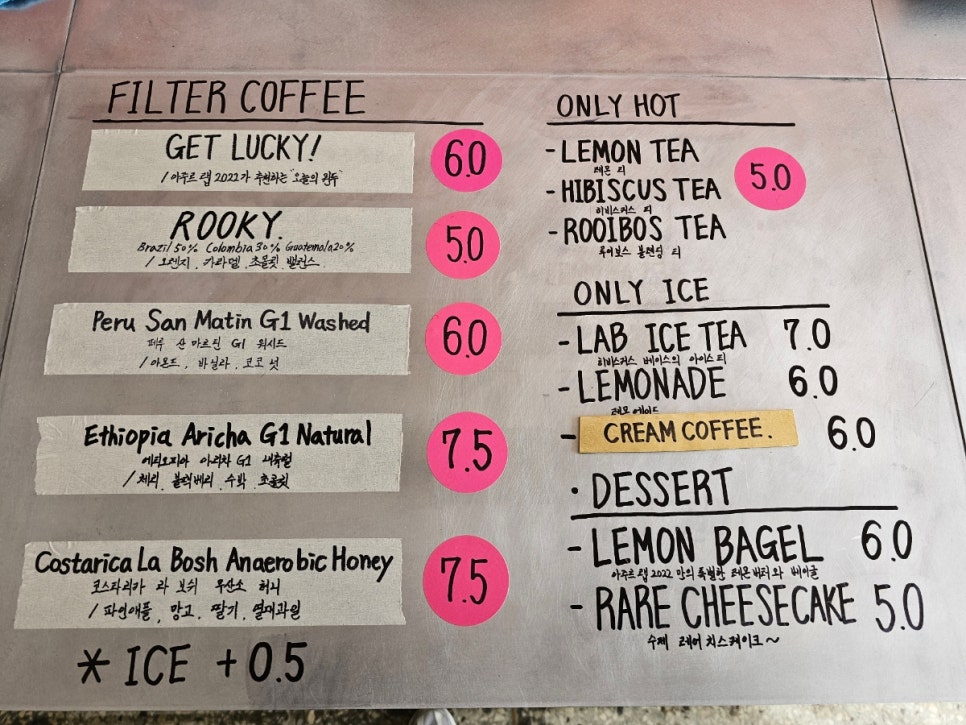 FILTER COFFEE
GET LUCKY!
/ 아쭈르 랩 2022가 추천하는 "오늘의 원두"
6.0
ROOKY.
Brazil 50% Colombia 30% Guatemala 20%
/ 오렌지, 카라멜, 초콜릿 밸런스
5.0
Peru San Matin G1 Washed
페루 산 마르틴 G1 워시드
/ 아몬드, 바닐라, 코코넛
6.0
Ethiopia Aricha G1 Natural
에티오피아 아리차 G1 내츄럴
/ 체리, 블랙베리, 수박, 초콜릿
7.5
Costarica La Bosh Anaerobic Honey
코스타리카 라 보쉬 무산소 허니
/ 파인애플, 망고, 딸기, 열대과일
7.5
* ICE +0.5
ONLY HOT
- LEMON TEA
레몬 티
- HIBISCUS TEA
히비스커스 티
- ROOIBOS TEA
루이보스 블렌딩 티
5.0
ONLY ICE
- LAB ICE TEA 7.0
히비스커스 베이스의 아이스티
- LEMONADE 6.0
레몬 에이드
- CREAM COFFEE. 6.0
· DESSERT
- LEMON BAGEL 6.0
아쭈르 랩 2022 만의 특별한 레몬버터와 베이글
- RARE CHEESECAKE 5.0
수제 레어 치즈케이크~